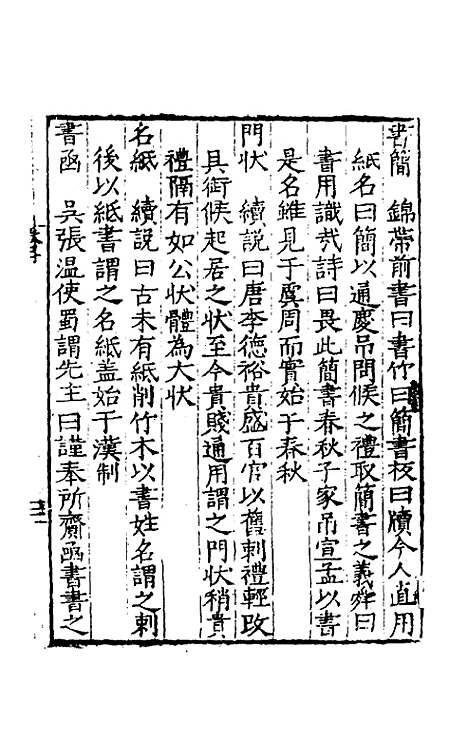 書簡　錦帶前書曰書竹曰簡書板曰牘今人直用
紙名曰簡以通慶吊問候之禮取簡書之義舜曰
書用識㦲詩曰畏此簡書春秋子家吊宣孟以書
是名雖見于虞周而實始于春秋
門狀　續說曰唐李德裕貴盛百官以舊刺禮輕改
具銜候起居之狀至今貴賤通用謂之門狀稍貴
禮隔有如公狀體為大狀
名紙　續說曰古未有紙削竹木以書姓名謂之刺
後以紙書謂之名紙盖始于漢制
書函　吳張温使蜀謂先主曰謹奉所齎函書書之